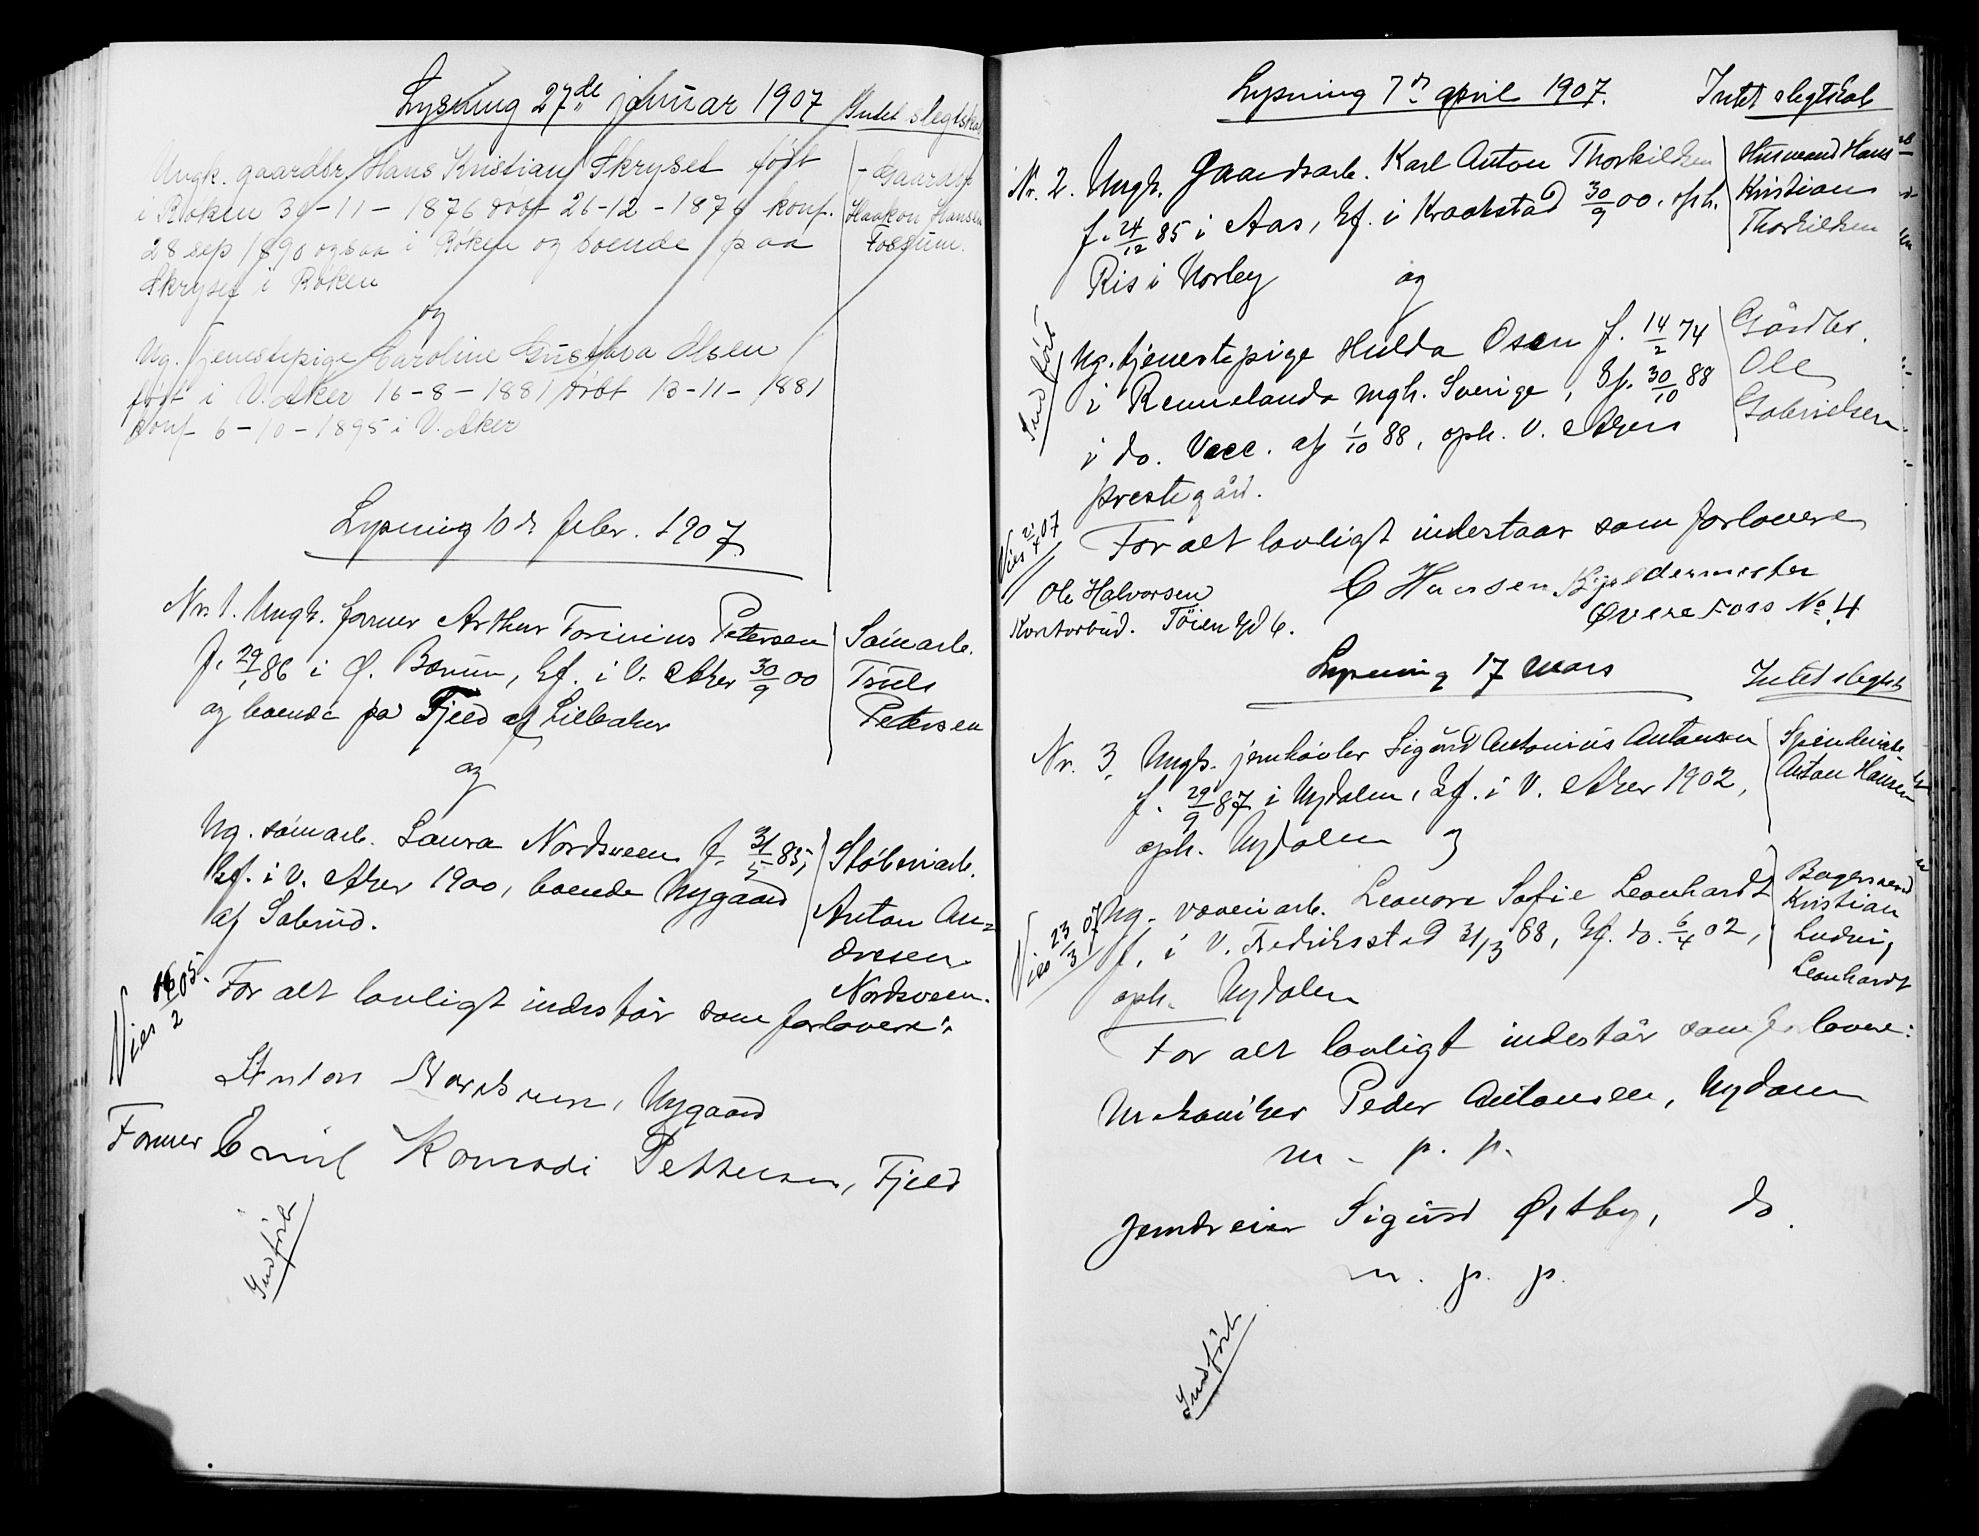 Lysning 27de januar 1907 Intet slegtskab
Ungk. gaardbr. Hans Kristian Skryset født
i Røken 30-11-1876 døbt 26-12-1876 konf.
28 sep 1890 ogsaa i Røken og boende paa
Skryset i Røken
- Gaardbr.
Haakon Hansen
Fossum.
og
Ug. tjenestepige Caroline Gustava Olsen
født i V. Aker 16-8-1881 døbt 13-11-1881
konf 6-10-1895 i V. Aker
Lysning 10de febr. 1907
Nr. 1. Ungk. former Arthur Petersen
f. 29/1 86 i Ø. Bærum, kf. i V. Aker 30/9 00
og boende på Fjeld af Lilleaker
Sømarb.
Truls
Petersen
og
Ug. sømarb. Laura Nordsveen f. 31/5 85,
kf. i V. Aker 1900, boende Nygaard
af Sølerud.
Støberiarb.
Anton An-
dresen
Nordsveen.
Viet 16/2 05.
For alt lovligt indestår som forlovere:
Anton Nordsveen, Nygaard
Former Emil Konradi Pettersen, Fjeld
Indført
Lysning 7de april 1907. Intet slegtskab
Nr. 2. Ungk. Gaardsarb. Karl Anton Thorkildsen
f. 24/12 85 i Aas, kf. i Kraakstad 30/9 00, oph.
Ris i Norby og
Husmand Hans
Kristian
Thorkildsen
Ug. tjenestepige Hulda Osen f. 14/2 74
i Rennelanda mgh. Sverige, kf. 30/10 88
i do. Vacc. af 1/10 88, oph. V. Akers
prestegård.
Gårdbr.
Ole
Gabrielsen
Indført
Viet 21/4 07
For alt lovligt indestaar som forlovere
Ole Halvorsen C Hansen Kjeldermester
Kontorbud. Tøien gd 6. Øvere Foss No 4
Lysning 17 mars Intet slegtsk
Nr. 3. Ungk. jernhøvler Sigurd Antonius Antonsen
f. 29/9 87 i Nydalen, kf. i V. Aker 1902,
oph. Nydalen
Anton Hansen
Ug. væveriarb. Leonora Sofie Leonhardt
f. i V. Fredriksstad 31/3 88, kf. do. 6/4 02,
oph. Nydalen
Bagersvend
Kristian
Ludvig
Leonhardt
Viet 23/3 07
For alt lovligt indestår som forlovere:
Mekaniker Peder Antonsen, Nydalen
m. p. p.
Jerndreier Sigurd Østby, do.
m. p. p.
Indført